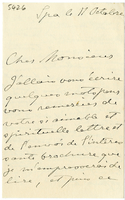 5426
Spa le 11 Octobre
Cher Monsieur
J'allais vous écrire
quelques mots pour
vous remercier de
votre si aimable et
spirituelle lettre et
de l'envoi de l'intéres
sante brochure que
je m'empresserai de
lire, et puis je